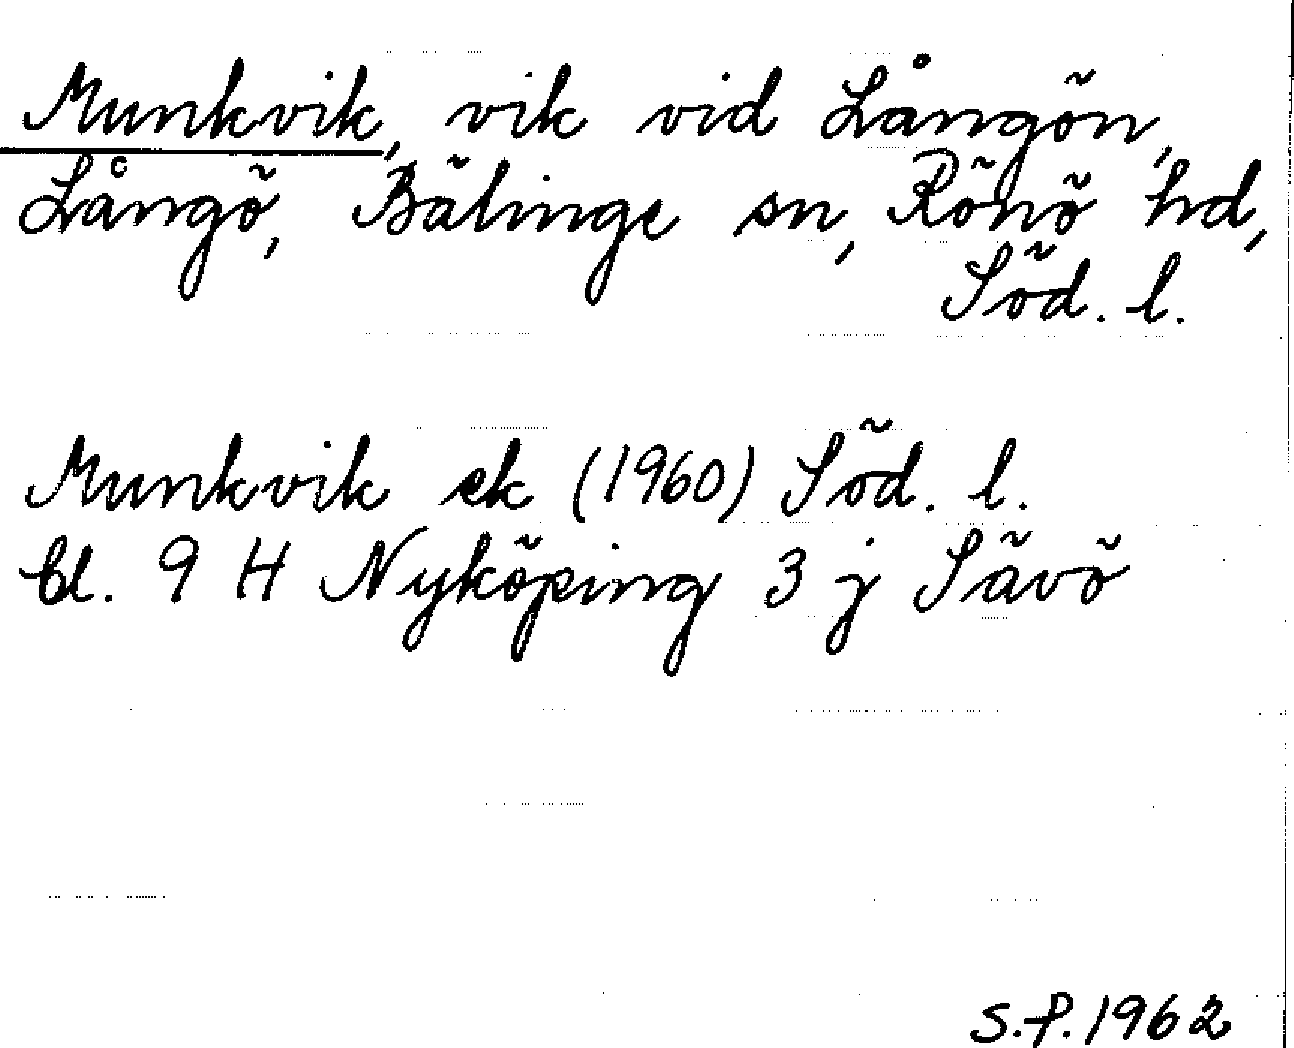 Munkvik, vik vid Långön,
Långö, Bälinge sn, Rönö hd,
Söd. l.
Munkvik ek (1960) Söd. l.
bl. 9 H Nyköping 3 j Sävö
S.P. 1962